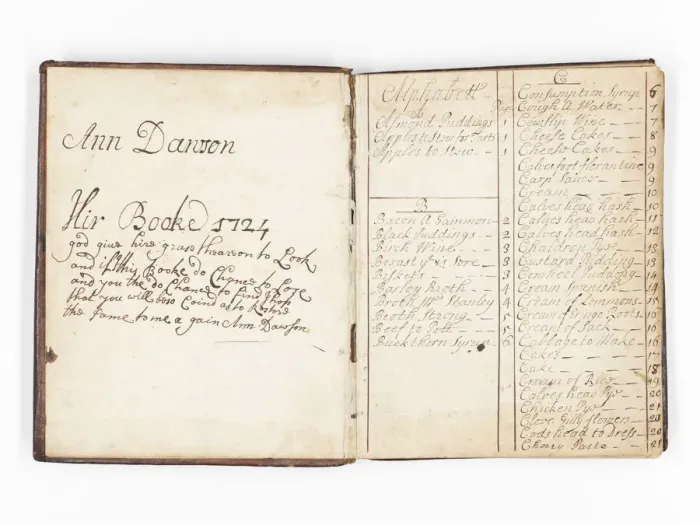 Ann Dawson
Hir Booke 1724
god give hir grase thearon to Look
and if this Booke do Chance to Lose
and you the do Chance to find
that you will beso Coind as to Restore
the same to me a gain Ann Dawson
Alphabett
A
Page
Almond Puddings 1
Apples to Stew for Tarts 1
Apples to Stew - 1
B
Bacon a Gammon 2
Black Puddings - 2
Birch Wine - - 3
Breast yt is Sore - 3
Biskets - - - 3
Barley Broth - 4
Broth Mrs Stanley 4
Broth Strong - - 5
Beef to Pott - - 5
Buckthorn Syrup 6
C
Consumption Syrup 6
Cough a Water - - 7
Cowslip Wine - - 7
Cheese Cakes - - 8
Cheese Cakes - - 9
Calvesfoot florantine 9
Carp Sauce - - 9
Cream - - - 10
Calves head Hash - 10
Calves head hash - 11
Calves head hash - 12
Chaldren Pye - - 13
Custard Pudding - 13
Cowheel Pudding - 14
Cream Spanish - - 14
Cream of Lemmons - 15
Cream of Eringo Roots 16
Cream of Sack - - 16
Cabbage to Make - 16
Cakes - - - 17
Cake - - - 18
Cream of Rice - - 19
Calves head Pye - - 20
Chicken Pye - - - 21
Clove Gilly flowers - 20
Cods head to dress - 20
Paste - - 21